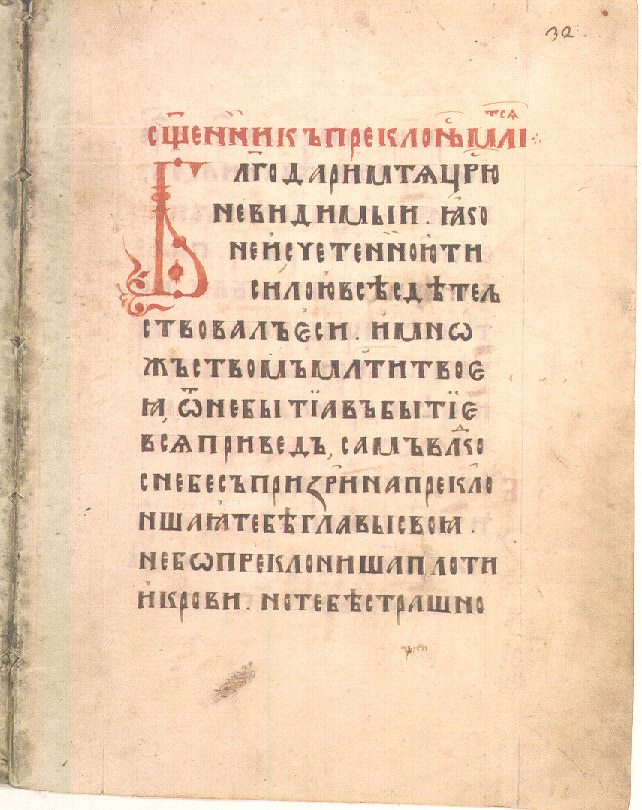 32
сщ҃енникъ преклонь мл҃ітсѧ
Бл҃годаримтѧ цр҃ю
невидимыи. ꙗко
неисчетенноюти
силою всѣ съдѣтел
ствовалъ еси. и мнѡ
жъствомъ млⷭ҇ти твоеѧ
ѿ небытїа въ бытїе
всѧ приведъ, самъ влⷣко
с небесъ призри на прекло
ншаѧ тебѣ главы своѧ.
не бѡ преклонишаплоти
и крови. но тебѣ страшно